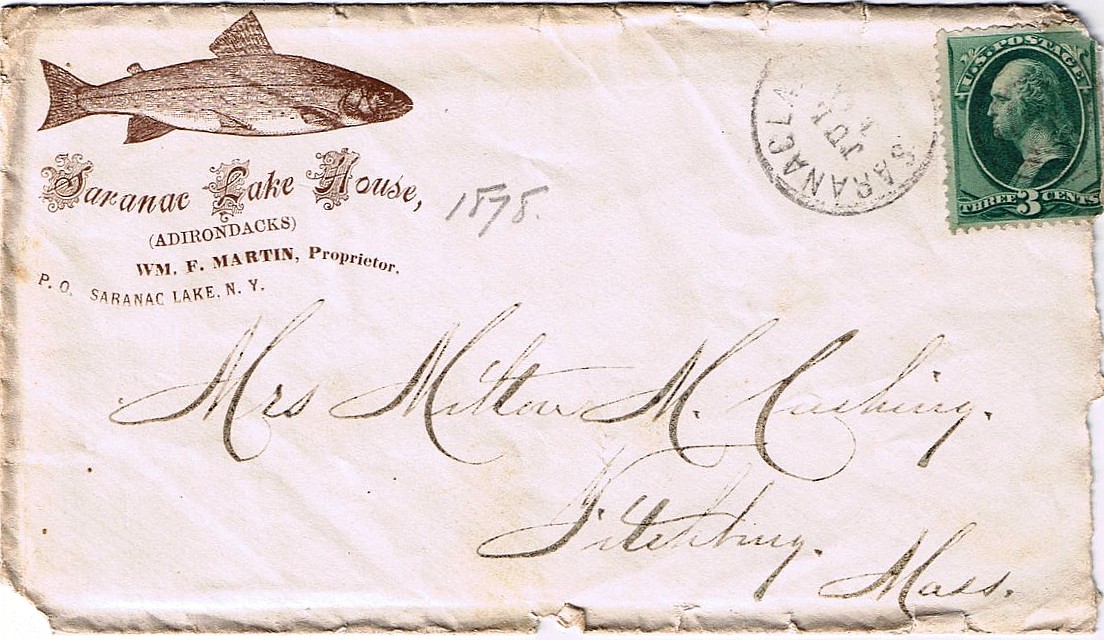 Saranac Lake House,
(ADIRONDACKS)
WM. F. MARTIN, Proprietor.
P. O. SARANAC LAKE, N. Y.
1878.
SARANAC LA
U.S. POSTAGE
THREE 3 CENTS
Mrs Milton M. Cushing.
Fitchburg.
Mass.